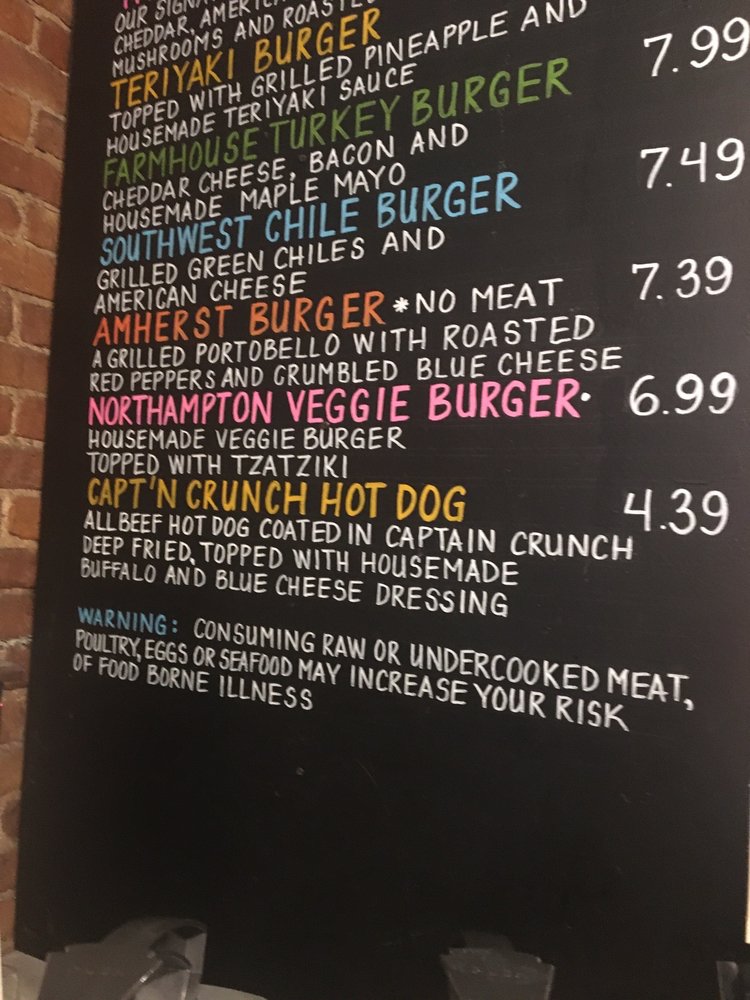 OUR SIGNA
CHEDDAR, AMERICA
MUSHROOMS AND ROASTED
TERIYAKI BURGER
TOPPED WITH GRILLED PINEAPPLE AND 7.99
HOUSEMADE TERIYAKI SAUCE
FARMHOUSE TURKEY BURGER
CHEDDAR CHEESE, BACON AND 7.49
HOUSEMADE MAPLE MAYO
SOUTHWEST CHILE BURGER
GRILLED GREEN CHILES AND 7.39
AMERICAN CHEESE
AMHERST BURGER *NO MEAT
A GRILLED PORTOBELLO WITH ROASTED
RED PEPPERS AND CRUMBLED BLUE CHEESE
NORTHAMPTON VEGGIE BURGER• 6.99
HOUSEMADE VEGGIE BURGER
TOPPED WITH TZATZIKI
CAPT'N CRUNCH HOT DOG 4.39
ALL BEEF HOT DOG COATED IN CAPTAIN CRUNCH
DEEP FRIED, TOPPED WITH HOUSEMADE
BUFFALO AND BLUE CHEESE DRESSING
WARNING: CONSUMING RAW OR UNDERCOOKED MEAT,
POULTRY, EGGS OR SEAFOOD MAY INCREASE YOUR RISK
OF FOOD BORNE ILLNESS